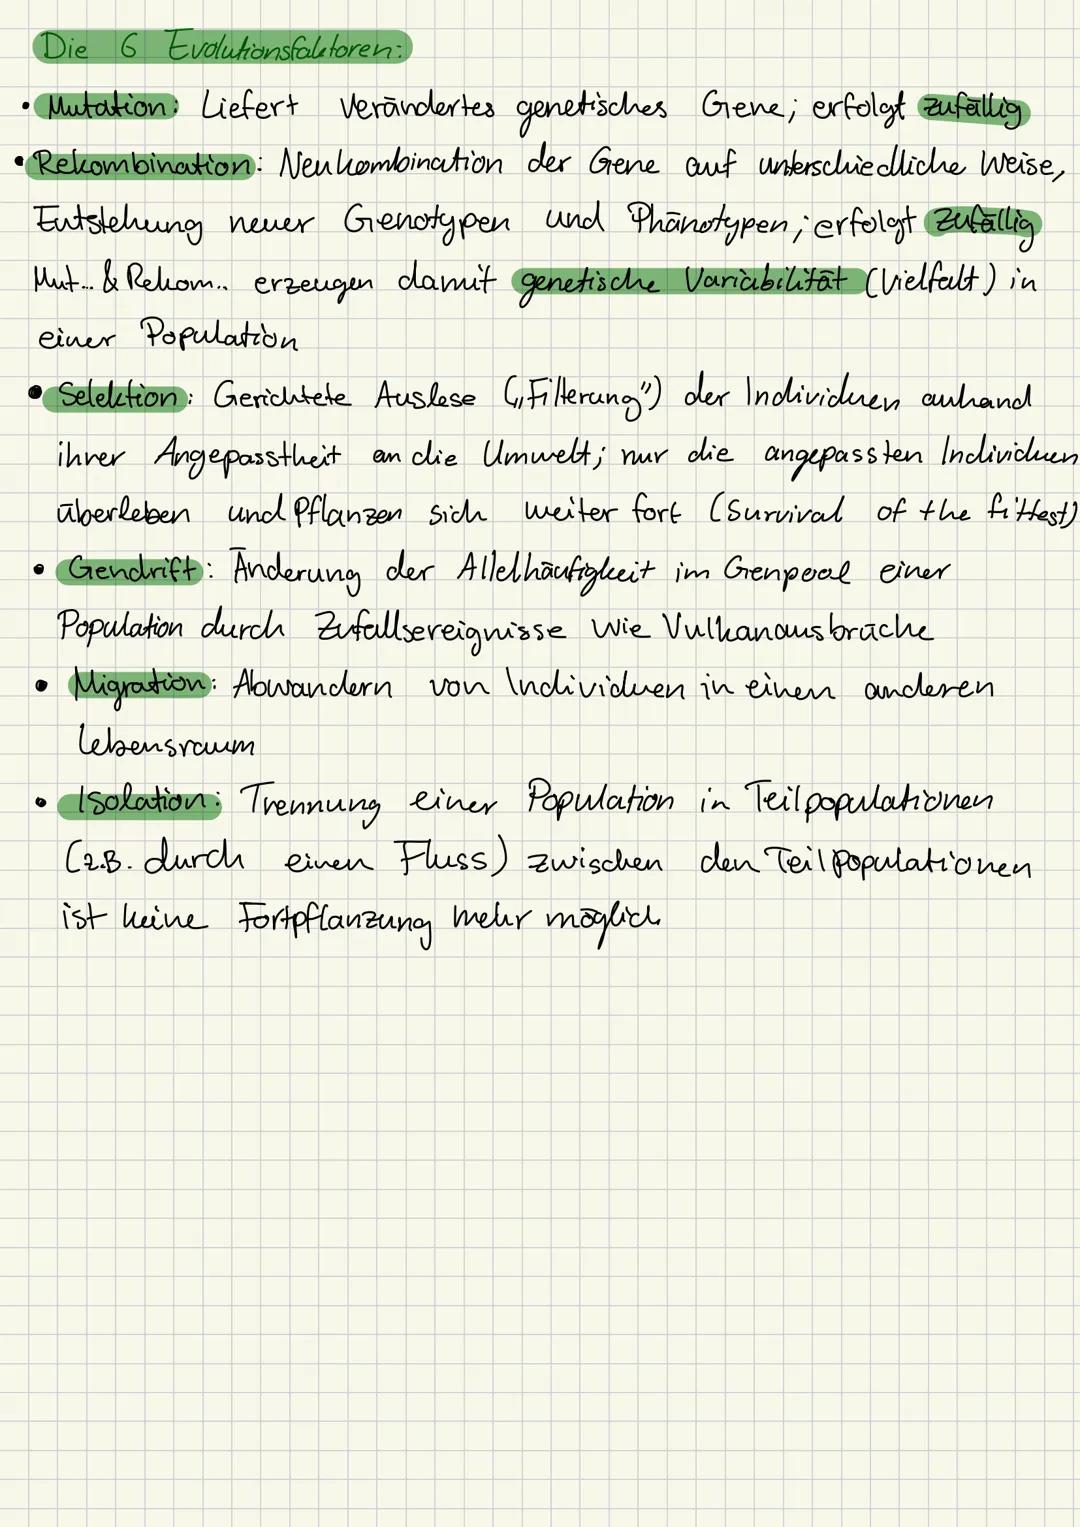 Die 6 Evolutionsfaktoren:
• Mutation: Liefert verändertes genetisches Gene; erfolgt zufällig
• Rekombination: Neukombination der Gene auf unterschiedliche Weise,
Entstehung neuer Genotypen und Phänotypen; erfolgt zufällig
Mut... & Rekom.. erzeugen damit genetische Variabilität (Vielfalt) in
einer Population
• Selektion: Gerichtete Auslese („Filterung") der Individuen anhand
ihrer Angepasstheit an die Umwelt; nur die angepassten Individuen
überleben und Pflanzen sich weiter fort (Survival of the fittest)
• Gendrift: Änderung der Allelhäufigkeit im Genpool einer
Population durch Zufallsereignisse wie Vulkanausbrüche
• Migration: Abwandern von Individuen in einen anderen
Lebensraum
• Isolation: Trennung einer Population in Teilpopulationen
(z.B. durch einen Fluss) zwischen den Teilpopulationen
ist keine Fortpflanzung mehr möglich